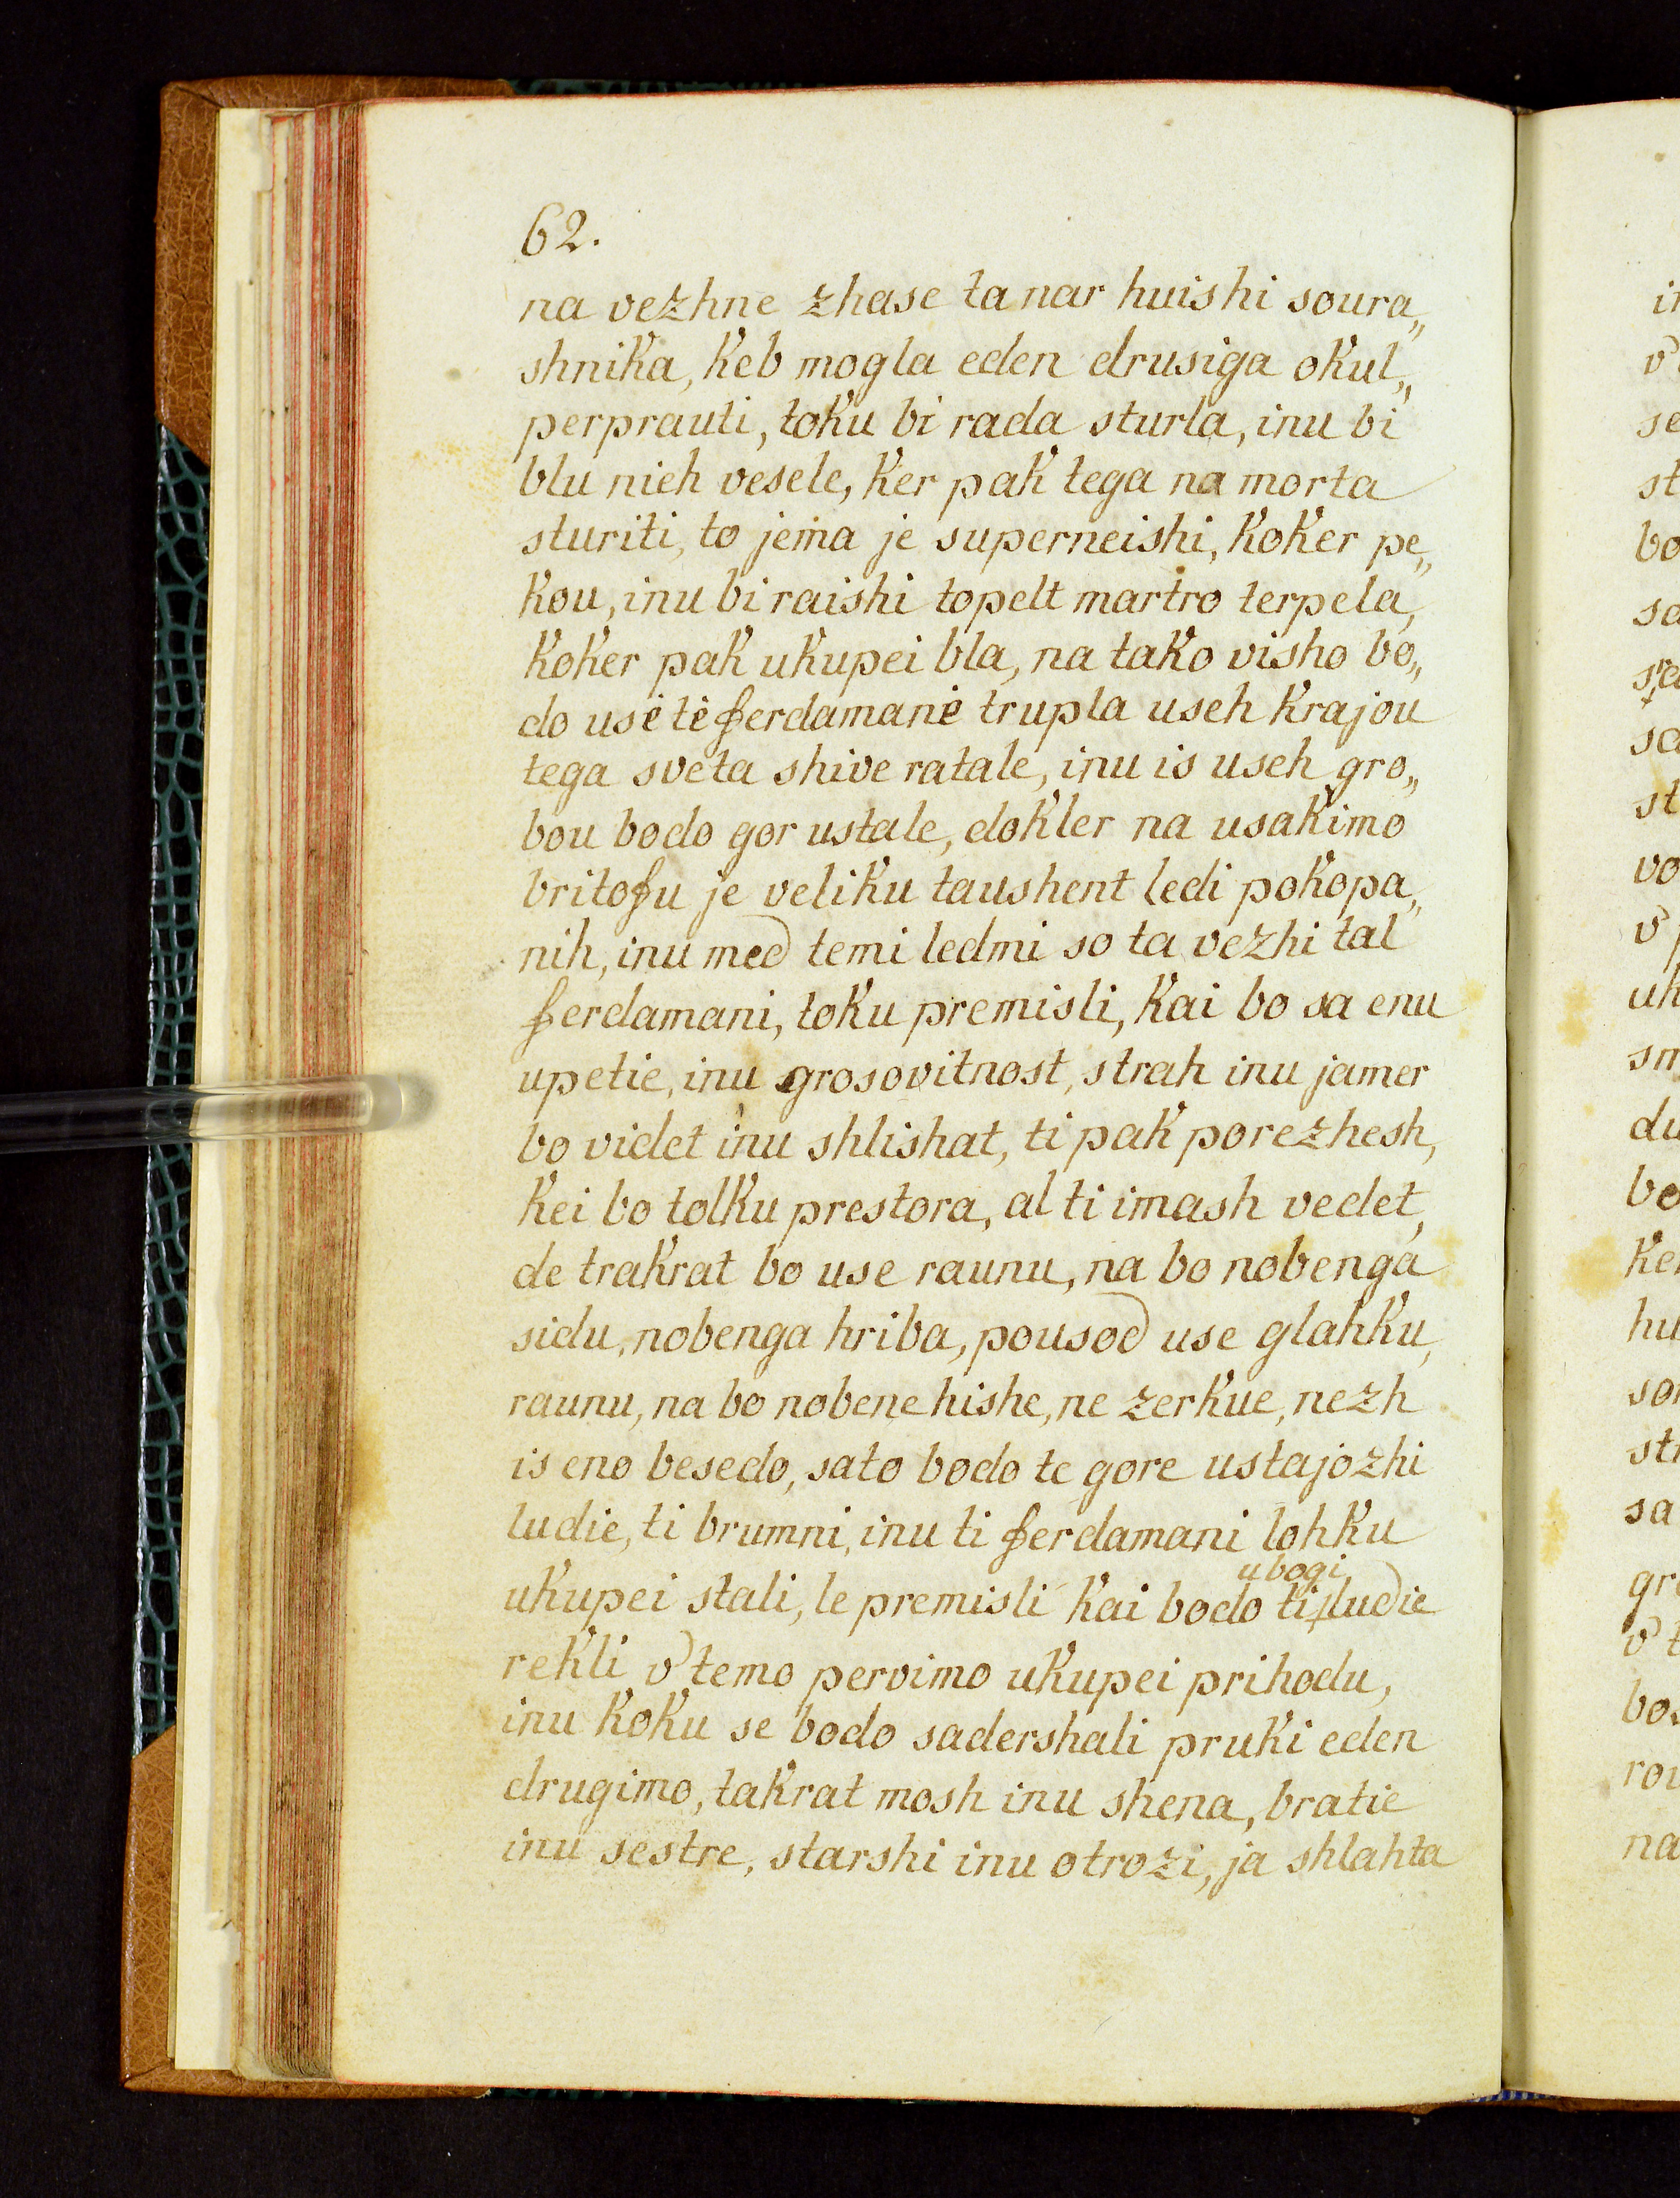 62.
na vezhne zhase ta nar huishi soura„
shnika, keb mogla eden drusiga okul„
perprauti, toku bi rada sturla, inu bi
blu nieh vesele, ker pak tega na morta
sturiti, to jema je superneishi, koker pe„
kou, inu bi raishi topelt martro terpela,
koker pak ukupei bla, na tako visho bo„
do usė tė ferdamanė trupla useh krajou
tega sveta shive ratale, inu is useh gro„
bou bodo gor ustale, dokler na usakimo
britofu je veliku taushent ledi pokopa„
nih, inu med temi ledmi so ta vezhi tal
ferdamani, toku premisli, kai bo sa enu
upetie, inu grosovitnost, strah inu jamer
bo videt inu shlishat, ti pak porezhesh,
kei bo tolku prestora, al ti imash vedet,
de trakrat bo use raunu, na bo nobenga
sidu, nobenga hriba, pousod use glahku,
raunu, na bo nobene hishe, ne zerkue, nezh
is eno besedo, sato bodo te gore ustajozhi
ludie, ti brumni, inu ti ferdamani lohku
ubogi
ukupei stali, le premisli kai bodo ti ludie
rekli v temo pervimo ukupei prihodu,
inu koku se bodo sadershali pruki eden
drugimo, takrat mosh inu shena, bratie
inu sestre, starshi inu otrozi, ja shlahta